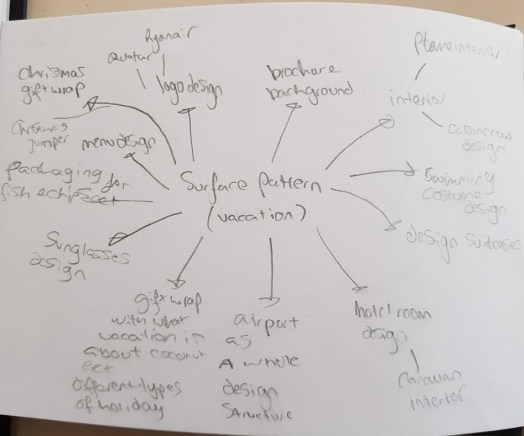 ryanair
avatar
logo design
christmas
gift wrap
Christmas
jumper
menu design
brochare
background
plane interior
interior
design
Surface pattern
(vacation)
packaging for
fish
Swimming
costume
design
design suitcases
Sunglasses
design
gift wrap
with what
vacation is
about coconut
ect
different types
of holiday
airport
as
A whole
design
structure
hotel room
design
caravan
interior